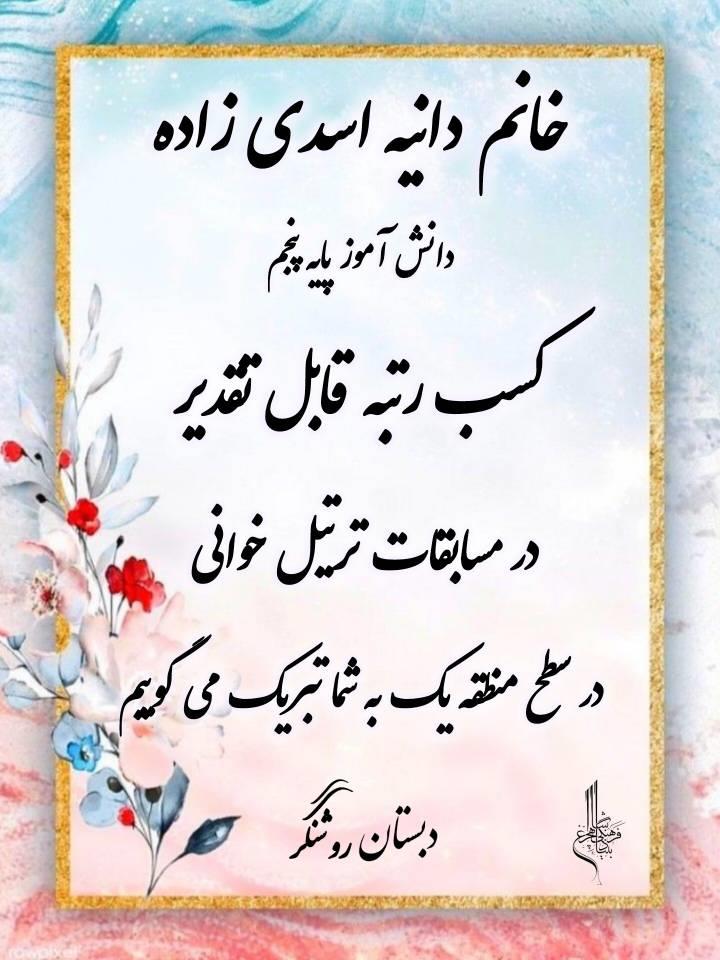 خانم دانیه اسدی زاده
دانش آموز پایه پنجم
کسب رتبه قابل تقدیر
در مسابقات ترتیل خوانی
در سطح منطقه یک به شما تبریک می گوییم
دبستان روشنگر
rawpixel